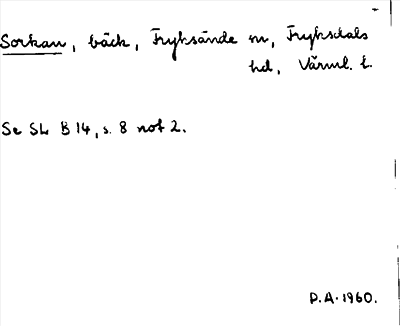 Sorkan, bäck, Fryksände sn, Fryksdals
hd, Värml. l.
Se SL B 14, s. 8 not 2.
P.A. 1960.